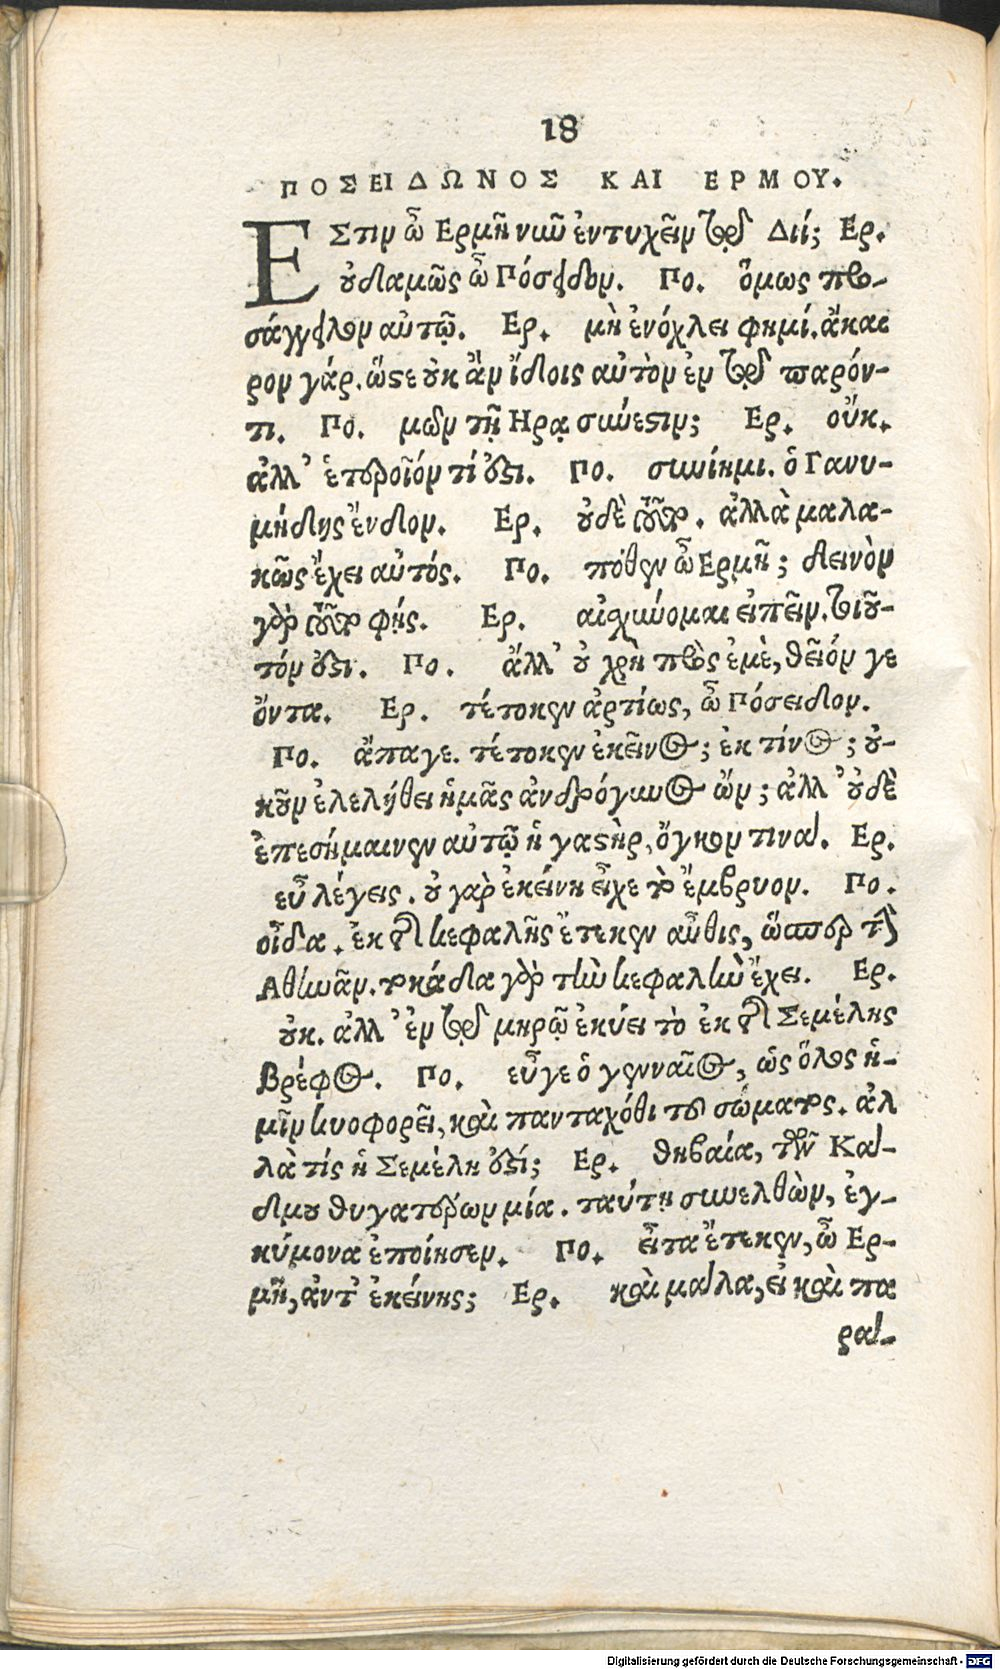 18
ΠΟΣΕΙΔΩΝΟΣ ΚΑΙ ΕΡΜΟΥ.
ΕΣτιν ὦ Ερμῆ νιῦ ἐντυχεῖν τῷ Διί; Ερ.
οὐδαμῶς ὦ Πόσειδον. Πο. ὅμως προ-
σάγγειλον αὐτῷ. Ερ. μὴ ἐνόχλει φημί. ἄκαι
ρον γάρ. ὥστε οὐκ ἂν ἴδοις αὐτὸν ἐν τῷ παρόν-
τι. Πο. μῶν τῇ Ηρᾳ σύνεστιν; Ερ. οὔκ.
ἀλλ' ἑτεροῖόν τί ἐστι. Πο. συνίημι. ὁ Γανυ-
μήδης ἔνδον. Ερ. οὐδὲ τοῦτο. ἀλλὰ μαλα-
κῶς ἔχει αὐτός. Πο. πόθεν ὦ Ερμῆ; δεινὸν
γὰρ τοῦτο φῄς. Ερ. αἰσχύνομαι εἰπεῖν. τοιοῦ-
τόν ἐστι. Πο. ἄλλ' οὐ χρὴ πρὸς ἐμὲ, θεῖόν γε
ὄντα. Ερ. τέτοκεν ἀρτίως, ὦ Πόσειδον.
Πο. ἄπαγε. τέτοκεν ἐκεῖνος; ἐκ τίνος; οὐ-
κοῦν ἐλελήθει ἡμᾶς ἀνδρόγυνος ὤν; ἀλλ' οὐδὲ
ἐπεσήμαινεν αὐτῷ ἡ γαστὴρ, ὄγκον τινα. Ερ.
εὖ λέγεις. οὐ γαρ ἐκείνη εἶχε τὸ ἔμβρυον. Πο.
οἶδα. ἐκ τῆς κεφαλῆς ἔτεκεν αὖθις, ὥσπερ τὴν
Αθηνᾶν. τοκάδα γὰρ τὴν κεφαλὴν ἔχει. Ερ.
οὐκ. ἀλλ' ἐν τῷ μηρῷ ἐκύει τὸ ἐκ τῆς Σεμέλης
Βρέφος. Πο. εὖγε ὁ γενναῖος, ὡς ὅλος ἡ-
μῖν κυοφορεῖ, καὶ πανταχόθι τοῦ σώματος. ἀλ
λὰ τίς ἡ Σεμέλη ἐστί; Ερ. θηβαία, τῶν Κα-
δμου θυγατέρων μία. ταύτῃ συνελθὼν, ἐγ-
κύμονα ἐποίησεν. Πο. εἶτα ἔτεκεν, ὦ Ερ-
μῆ, ἀντ' ἐκείνης; Ερ. καὶ μαλα, εἰ καὶ πα
ρα-
Digitalisierung gefördert durch die Deutsche Forschungsgemeinschaft - DFG